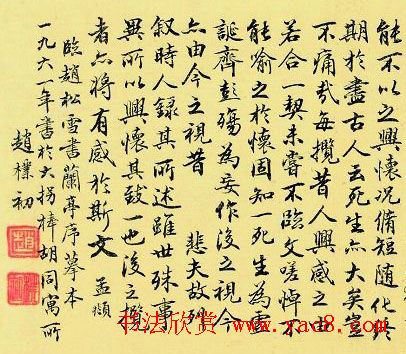 能不以之興懷況脩短隨化終
期於盡古人云死生亦大矣豈
不痛哉每攬昔人興感之由
若合一契未嘗不臨文嗟悼不
能喻之於懷固知一死生為虛
誕齊彭殤為妄作後之視今
亦由今之視昔 悲夫故列
敘時人錄其所述雖世殊事
異所以興懷其致一也後之攬
者亦將有感於斯文 孟頫
臨趙松雪書蘭亭序摹本
一九六一年書於大拐棒胡同寓所
趙樸初
书法欣赏 www.yac8.com